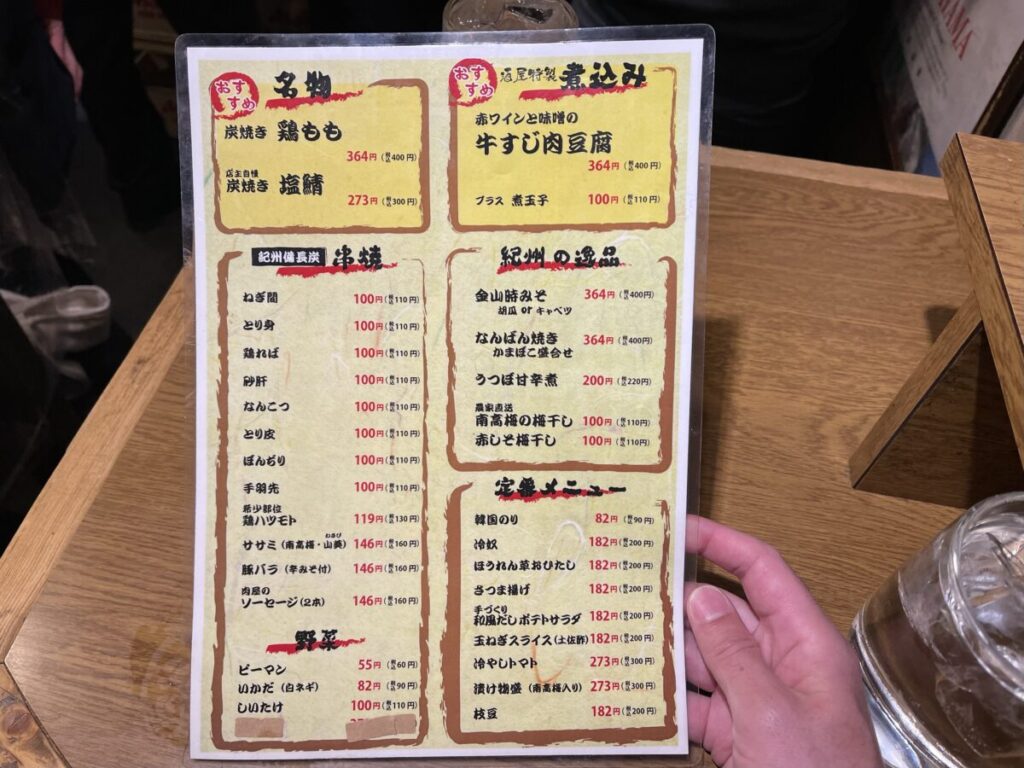 おすすめ
名物
炭焼き 鶏もも
364円(税込400円)
店主自慢
炭焼き 塩鯖
273円(税込300円)
おすすめ
酒屋特製 煮込み
赤ワインと味噌の
牛すじ肉豆腐
364円(税込400円)
プラス 煮玉子 100円(税込110円)
紀州備長炭 串焼
ねぎ間 100円(税込110円)
とり身 100円(税込110円)
鶏ればー 100円(税込110円)
砂肝 100円(税込110円)
なんこつ 100円(税込110円)
とり皮 100円(税込110円)
ぼんぢり 100円(税込110円)
手羽先 100円(税込110円)
希少部位
鶏ハツモト 119円(税込130円)
わさび
ササミ(南高梅・山葵) 146円(税込160円)
豚バラ(辛みそ付) 146円(税込160円)
肉屋の
ソーセージ(2本) 146円(税込160円)
野菜
ピーマン 55円(税込60円)
いかだ(白ネギ) 82円(税込90円)
しいたけ 100円(税込110円)
紀州の逸品
金山時みそ 364円(税込400円)
胡瓜 or キャベツ
なんばん焼き 364円(税込400円)
かまぼこ盛合せ
うつぼ甘辛煮 200円(税込220円)
農家直送
南高梅の梅干し 100円(税込110円)
赤しそ梅干し 100円(税込110円)
定番メニュー
韓国のり 82円(税込90円)
冷奴 182円(税込200円)
ほうれん草おひたし 182円(税込200円)
さつま揚げ 182円(税込200円)
手づくり
和風だしポテトサラダ 182円(税込200円)
玉ねぎスライス(土佐酢) 182円(税込200円)
冷やしトマト 273円(税込300円)
漬け物盛(南高梅入り) 273円(税込300円)
枝豆 182円(税込200円)